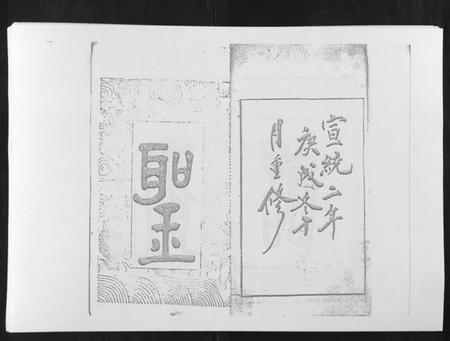 宣統二年
庚戌冬十
月重修
聖